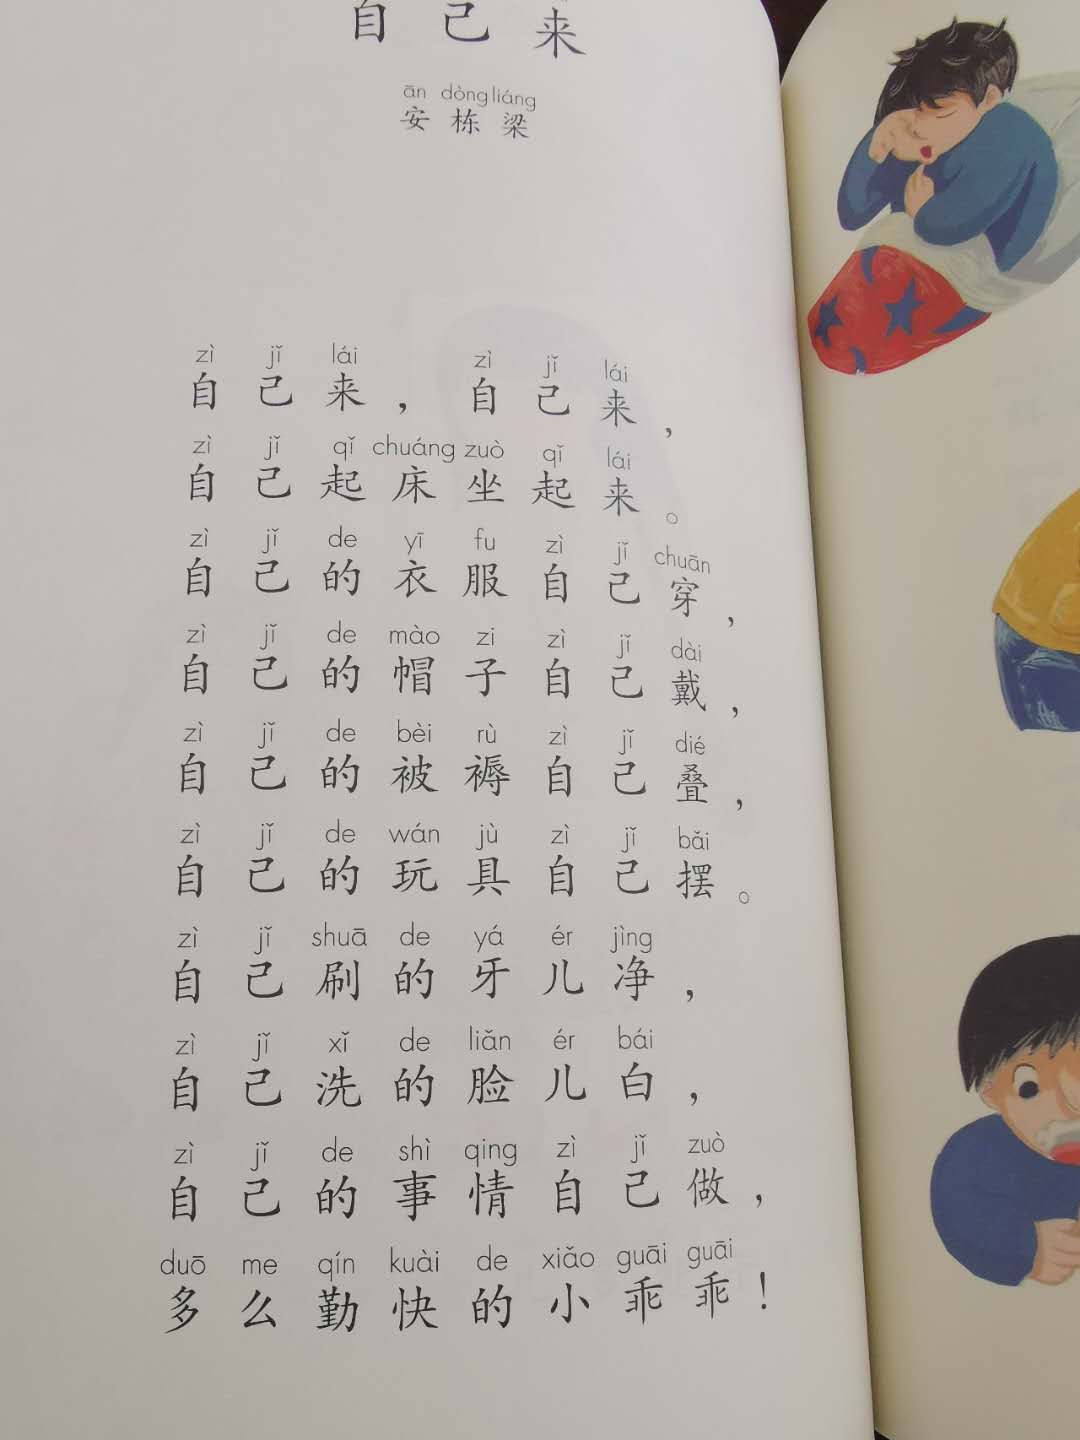 自己来
ān dòng liáng
安栋梁
zì jǐ lái zì jǐ lái
自己来，自己来，
zì jǐ qǐ chuáng zuò qǐ lái
自己起床坐起来。
zì jǐ de yī fu zì jǐ chuān
自己的衣服自己穿，
zì jǐ de mào zi zì jǐ dài
自己的帽子自己戴，
zì jǐ de bèi rù zì jǐ dié
自己的被褥自己叠，
zì jǐ de wán jù zì jǐ bǎi
自己的玩具自己摆。
zì jǐ shuā de yá ér jìng
自己刷的牙儿净，
zì jǐ xǐ de liǎn ér bái
自己洗的脸儿白，
zì jǐ de shì qing zì jǐ zuò
自己的事情自己做，
duō me qín kuài de xiǎo guāi guāi
多么勤快的小乖乖！